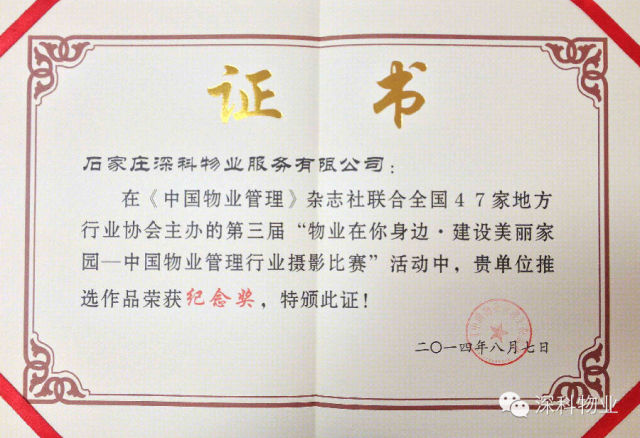 证 书
石家庄深科物业服务有限公司：
在《中国物业管理》杂志社联合全国47家地方
行业协会主办的第三届“物业在你身边·建设美丽家
园—中国物业管理行业摄影比赛”活动中，贵单位推
选作品荣获纪念奖，特颁此证！
二〇一四年八月七日
深科物业